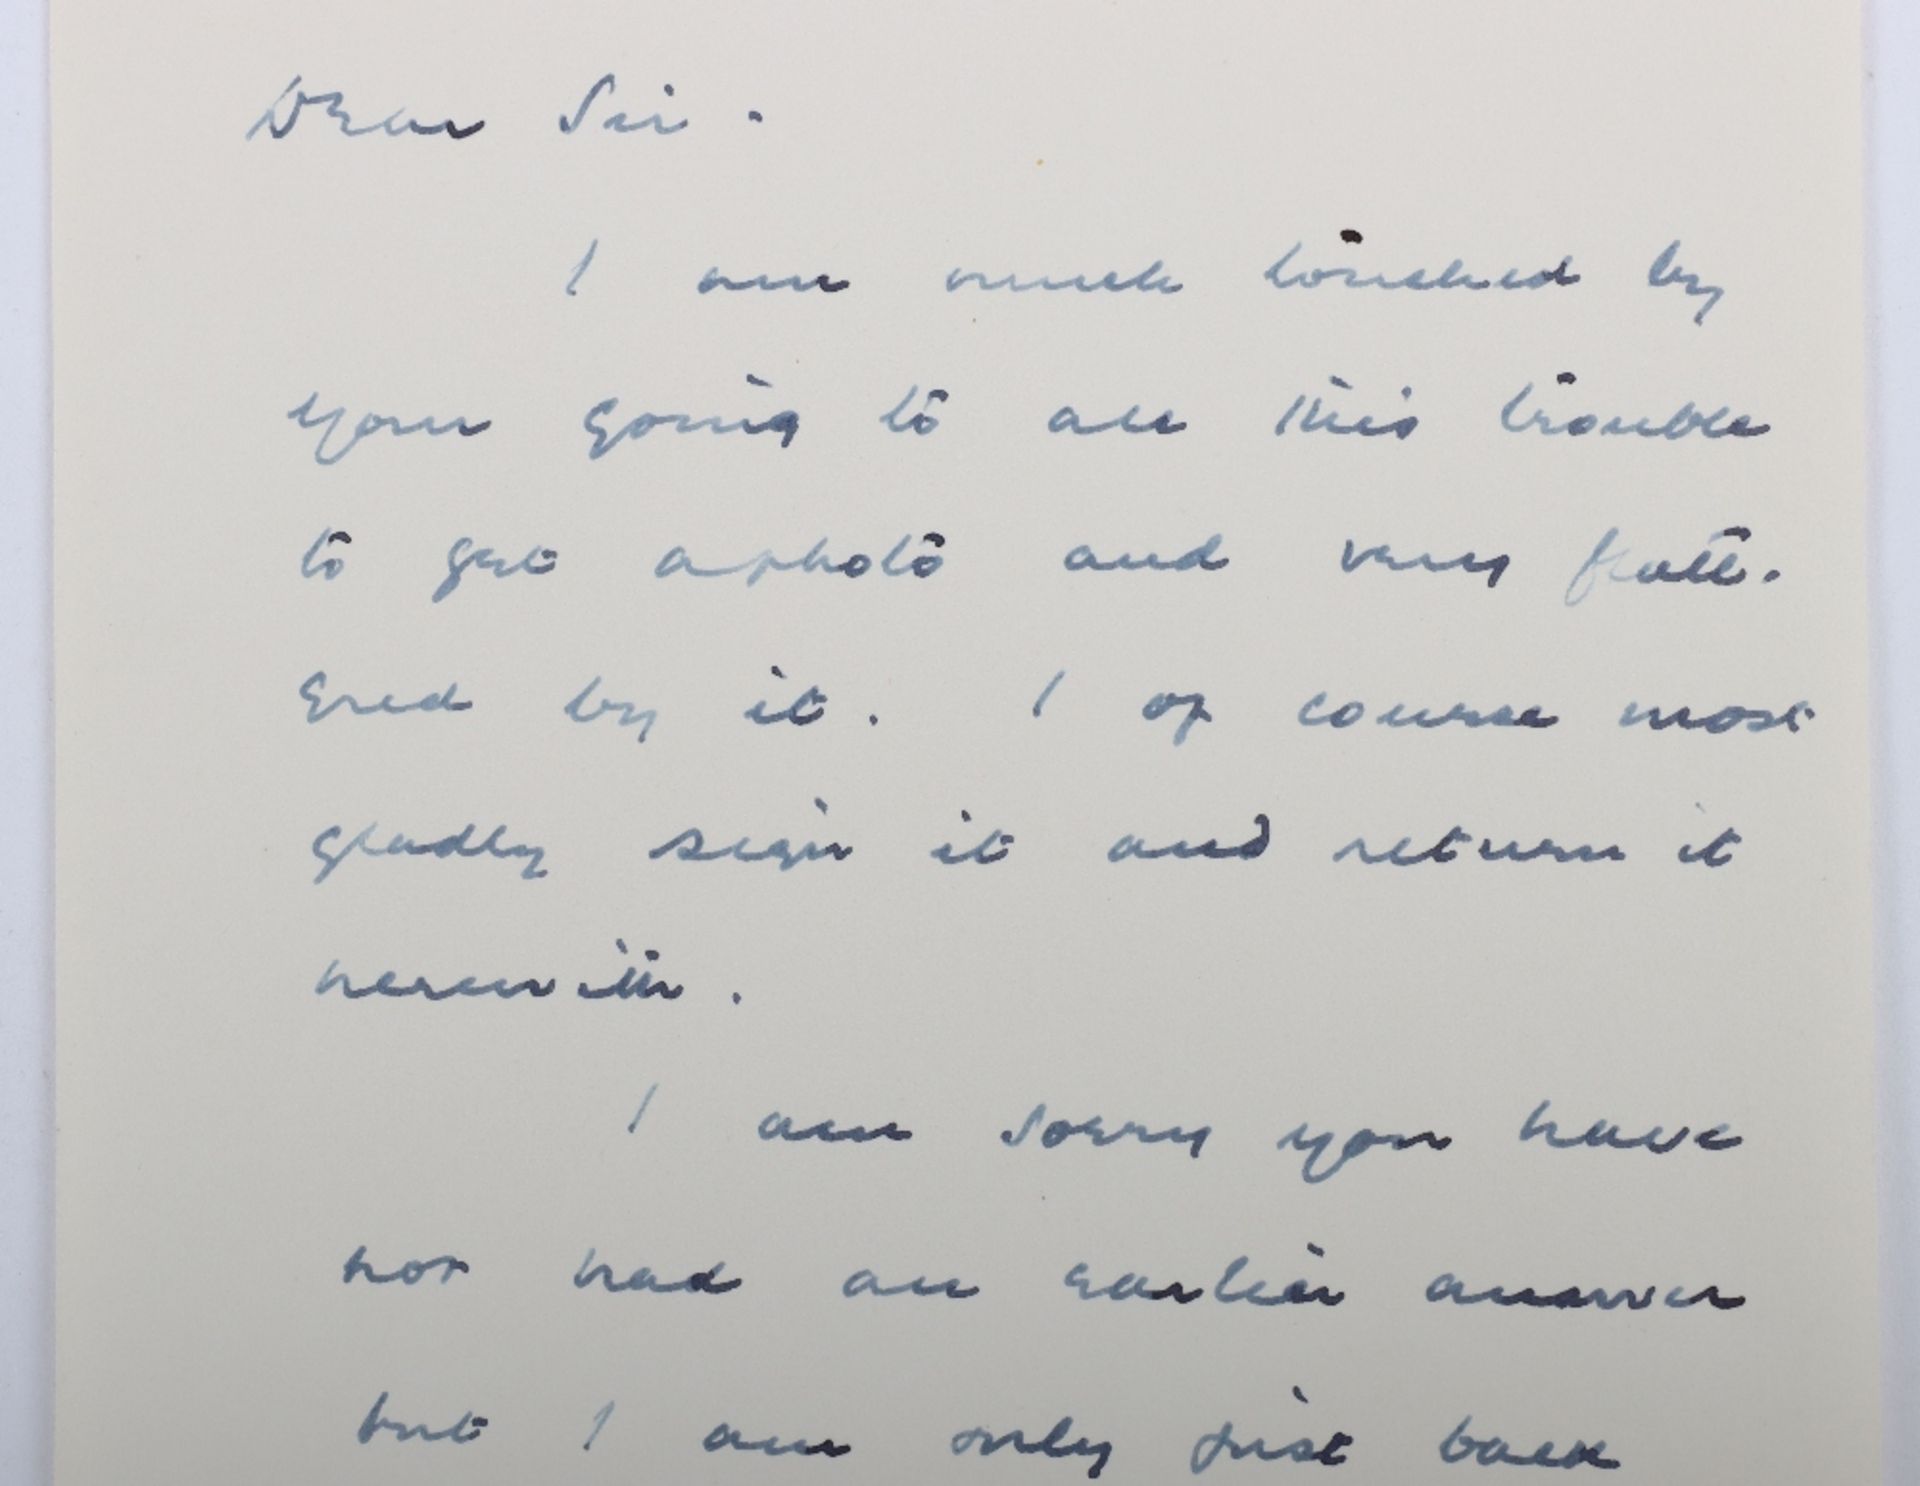 Dear Sir.
I am much touched by
your going to all this trouble
to get a photo and very flatt-
ered by it. I of course most
gladly sign it and return it
herewith.
I am sorry you have
not had an earlier answer
but I am only just back